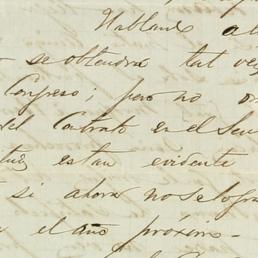 Habland
se obtendra tal vez
Congreso; pero no
del Contrato en el Sen
estan evidente
si ahora no se logra
el año próximo.